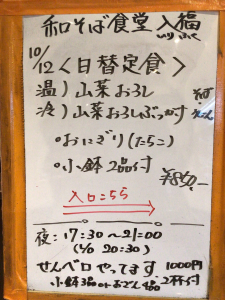 和そば食堂 入福
いり ふく
10/12〈日替定食〉
温)山菜おろし
冷)山菜おろしぶっかけ
•おにぎり(たらこ)
•小鉢2品付
¥850-
入口:55
夜:17:30〜21:00
(L/o 20:30)
せんベロやってます 1000円
小鉢3品orおでん4品 2杯付